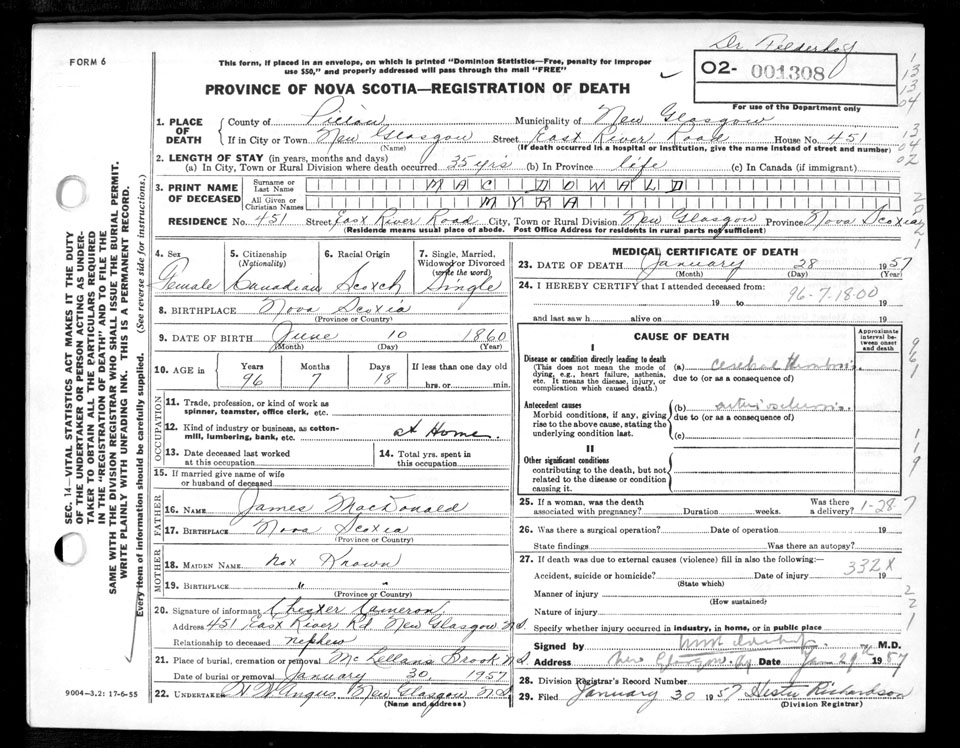 FORM 6
This form, if placed in an envelope, on which is printed "Dominion Statistics—Free, penalty for improper
use $50," and properly addressed will pass through the mail "FREE"
PROVINCE OF NOVA SCOTIA—REGISTRATION OF DEATH
Dr
O2- 001308
For use of the Department only
1. PLACE OF DEATH
County of Pictou Municipality of New Glasgow
If in City or Town New Glasgow Street East River Road House No. 451
(Name) (If death occurred in a hospital or institution, give the name instead of street and number)
2. LENGTH OF STAY (in years, months and days)
(a) In City, Town or Rural Division where death occurred 35 yrs (b) In Province life (c) In Canada (if immigrant)
3. PRINT NAME OF DECEASED
Surname or Last Name MAC DONALD
All Given or Christian Names MYRA
RESIDENCE No. 451 Street East River Road City, Town or Rural Division New Glasgow Province Nova Scotia
(Residence means usual place of abode. Post Office Address for residents in rural parts not sufficient)
4. Sex Female
5. Citizenship (Nationality) Canadian
6. Racial Origin Scotch
7. Single, Married, Widowed or Divorced (write the word) Single
8. BIRTHPLACE Nova Scotia
(Province or Country)
9. DATE OF BIRTH June 10 1860
(Month) (Day) (Year)
10. AGE in Years 96 Months 7 Days 18 If less than one day old hrs. or min.
OCCUPATION
11. Trade, profession, or kind of work as spinner, teamster, office clerk, etc.
12. Kind of industry or business, as cotton-mill, lumbering, bank, etc. at Home.
13. Date deceased last worked at this occupation
14. Total yrs. spent in this occupation
15. If married give name of wife or husband of deceased
FATHER
16. NAME James MacDonald
17. BIRTHPLACE Nova Scotia
(Province or Country)
MOTHER
18. MAIDEN NAME not Known
19. BIRTHPLACE " "
(Province or Country)
20. Signature of informant Chester Cameron
Address 451 East River Rd New Glasgow N.S.
Relationship to deceased nephew
21. Place of burial, cremation or removal McLellans Brook N.S.
Date of burial or removal January 30, 1957
22. UNDERTAKER Angus New Glasgow N.S.
(Name and address)
9004—3.2: 17-6-55
SEC. 14—VITAL STATISTICS ACT MAKES IT THE DUTY
OF THE UNDERTAKER OR PERSON ACTING AS UNDER-
TAKER TO OBTAIN ALL THE PARTICULARS REQUIRED
IN THE "REGISTRATION OF DEATH" AND TO FILE THE
SAME WITH THE DIVISION REGISTRAR WHO SHALL ISSUE THE BURIAL PERMIT.
WRITE PLAINLY WITH UNFADING INK. THIS IS A PERMANENT RECORD.
Every item of information should be carefully supplied. (See reverse side for Instructions.)
MEDICAL CERTIFICATE OF DEATH
23. DATE OF DEATH January 28 1957
(Month) (Day) (Year)
24. I HEREBY CERTIFY that I attended deceased from:
19 to 19
96-7-18-00
and last saw h alive on 19
CAUSE OF DEATH
Approximate interval between onset and death
I
Disease or condition directly leading to death
(This does not mean the mode of dying, e.g., heart failure, asthenia, etc. It means the disease, injury, or complication which caused death.)
(a) cerebral thrombosis.
due to (or as a consequence of)
Antecedent causes
Morbid conditions, if any, giving rise to the above cause, stating the underlying condition last.
(b) arteriosclerosis.
due to (or as a consequence of)
(c)
II
Other significant conditions
contributing to the death, but not related to the disease or condition causing it.
25. If a woman, was the death associated with pregnancy? Duration weeks. Was there a delivery? 1-28-7
26. Was there a surgical operation? Date of operation 19
State findings Was there an autopsy?
27. If death was due to external causes (violence) fill in also the following:
332X
Accident, suicide or homicide? Date of injury 19
(State which)
Manner of injury
(How sustained)
Nature of injury
Specify whether injury occurred in industry, in home, or in public place
Signed by M.D.
Address New Glasgow Date Jan. 29th 1957
28. Division Registrar's Record Number
29. Filed January 30 1957 Hester Richardson
(Division Registrar)